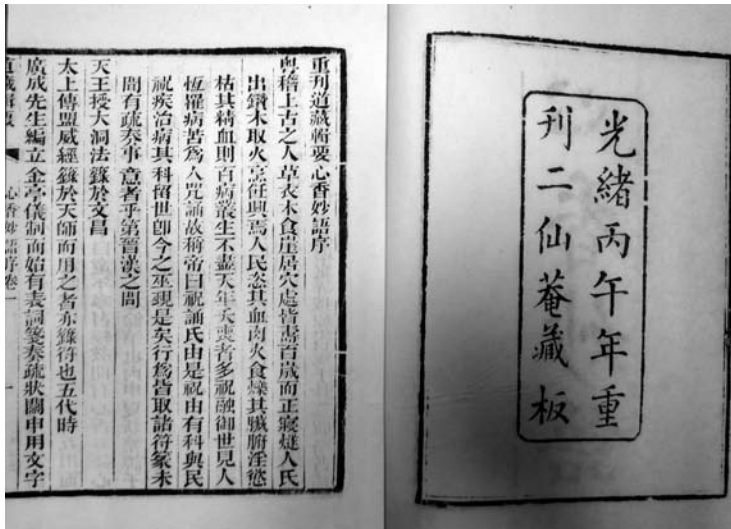 光緒丙午年重
刊二仙菴藏板
重刊道藏輯要心香妙語序
粵稽上古之人草衣木食崖居穴處皆壽百歲而正寢燧人氏
出鑽木取火烹飪興焉人民恣其血肉火食爍其臟腑淫慾
枯其精血則百病叢生不盡天年夭喪者多祝融御世見人
恆罹病苦爲人咒誦故稱帝曰祝誦氏由是祝由有科與民
祝疾治病其科留世卽今之巫覡是矣行爲皆取諸符篆未
聞有疏奏事意者乎第晉漢之間
天王授大洞法籙於文昌
太上傳盟威經籙於天師而用之者亦籙符也五代時
廣成先生編立金亭儀制而始有表詞箋奏疏狀關申用文字
道藏輯要 心香妙語序卷一 一